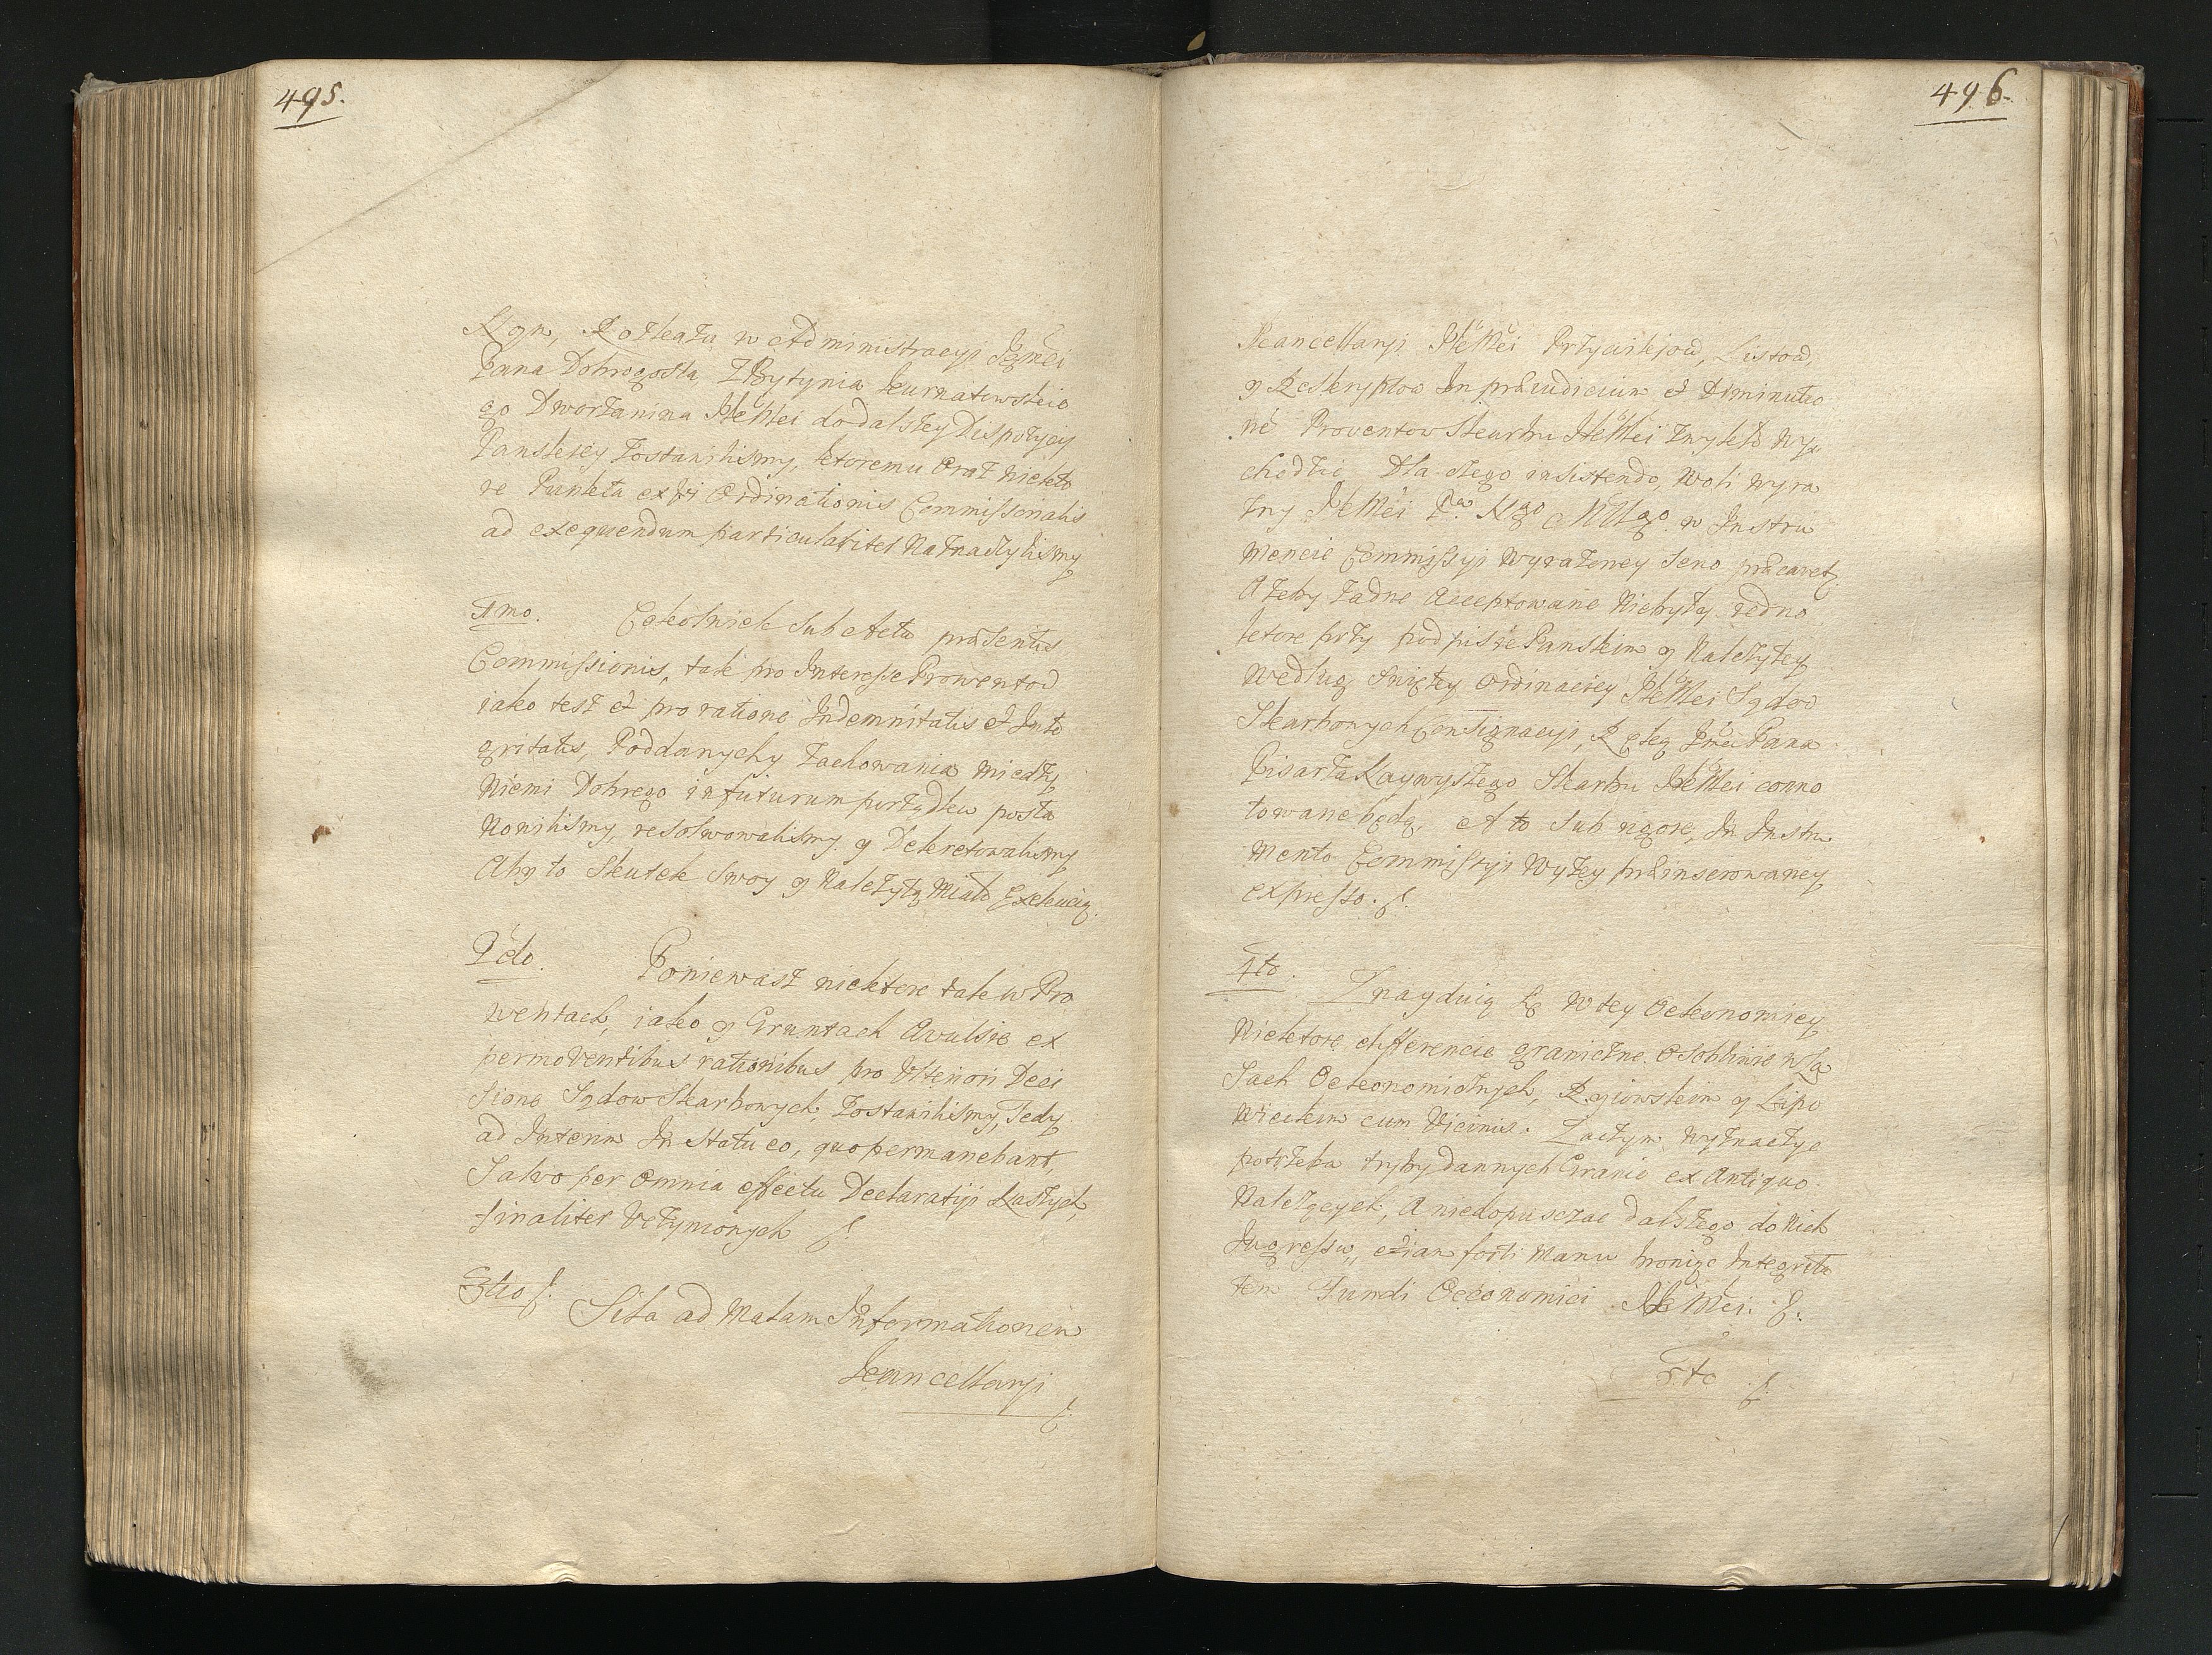 495.
Rozkazu w Administracyi
Pana Dobrogosta, Z Bytynia Kurnatowskie
go Dworzanina JKMci do dalszey Dispozycyi
Panskiey Zostawilismy, ktoremu Oraz Niekto
re Punkta ex vi Ordinationis Commissorialis
ad exequendum particulariter Naznaczylismy
1mo. Cokolwiek Sub Actu præsentis
Commissionis, tak pro Interesse Prowentow
iako tesz et pro ratione Indemnitatis et Inte
gritatis, Poddanych y zachowania Między
Niemi Dobrego in futurum porządku posta
Nowilismy, resolwowalismy y Dekretowalismy
Aby to Skutek Swoy y Należytą Miało Exekucią.
2do. Poniewasz niektore tak w Pro
wentach, iako y Gruntach Avulsie ex
permoventibus rationibus pro Ulteriori Deci
sione Sądow Skarbowych, Zostawilismy, Tedy
ad Interim In Statu eo, quo permanebant,
Salvo per Omnia effectu Declaratiji Naszych,
finaliter Uczynionych
3tio. Siła ad Malam Informationem
Kancellaryi
496.
Kancellaryi JKMci Przywilejow, Listow,
y Reskryptow In præiudicium et Diminutio
nē Proventow Skarbu JKMci zwykło Wy
chodzic Dla czego insistendo, Woli Wyra
zny JKMci Pana Ngo Młgo w Instru
Mencie Commissyi Wyrażoney Seno præcavet,
Ażeby żadne Acceptowane Niebyły. iedno
ktore przy podpisie Panskim y Należytey
Według Swiętey Ordinaciey JKMci Sądow
Skarbowych Consignacyi, Ręką Jmci Pana
Pisarza Naywyszego Skarbu JKMci conno
towane będą, A to Sub rigore, In Instru
Mento Commissyi Wyżey præinserowaney
expresso.
4to. Znayduią Się W tey Oekonomiey
Niektore differencie graniczne Osobliwie w La
sach Oekonomicznych, Kyiowskim y Lipo
Wieckim cum Vicinis. Zaczym Wyznaczyc
potrzeba tryby dawnych Granic ex Antiquo
Należących, A niedopuszczac dalszego do Nich
Ingressu, etiam forti Manu broniąc Integrita
tem Fundi Oeconomici JKMci.
5to